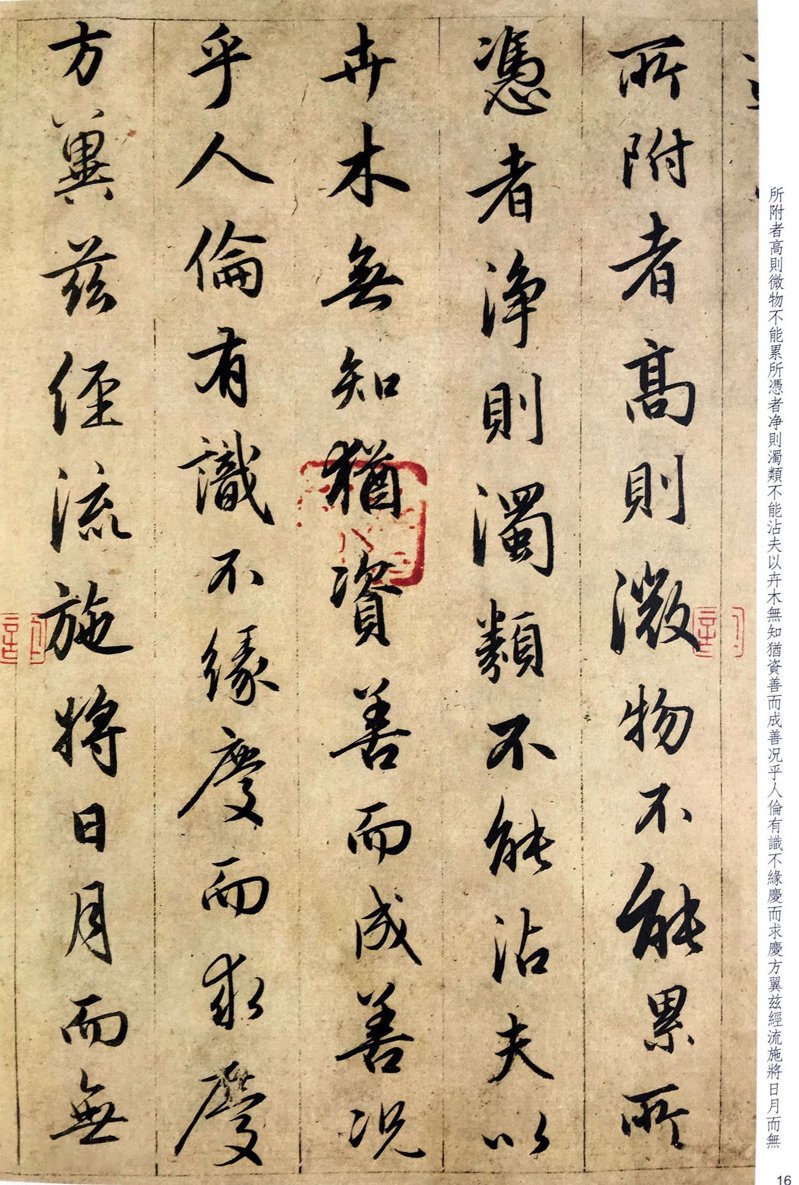 所附者高則微物不能累所
憑者淨則濁類不能沾夫以
卉木無知猶資善而成善況
乎人倫有識不緣慶而求慶
方冀茲經流施將日月而無
所附者高則微物不能累所憑者净則濁類不能沾夫以卉木無知猶資善而成善况乎人倫有識不緣慶而求慶方翼兹經流施將日月而無
16